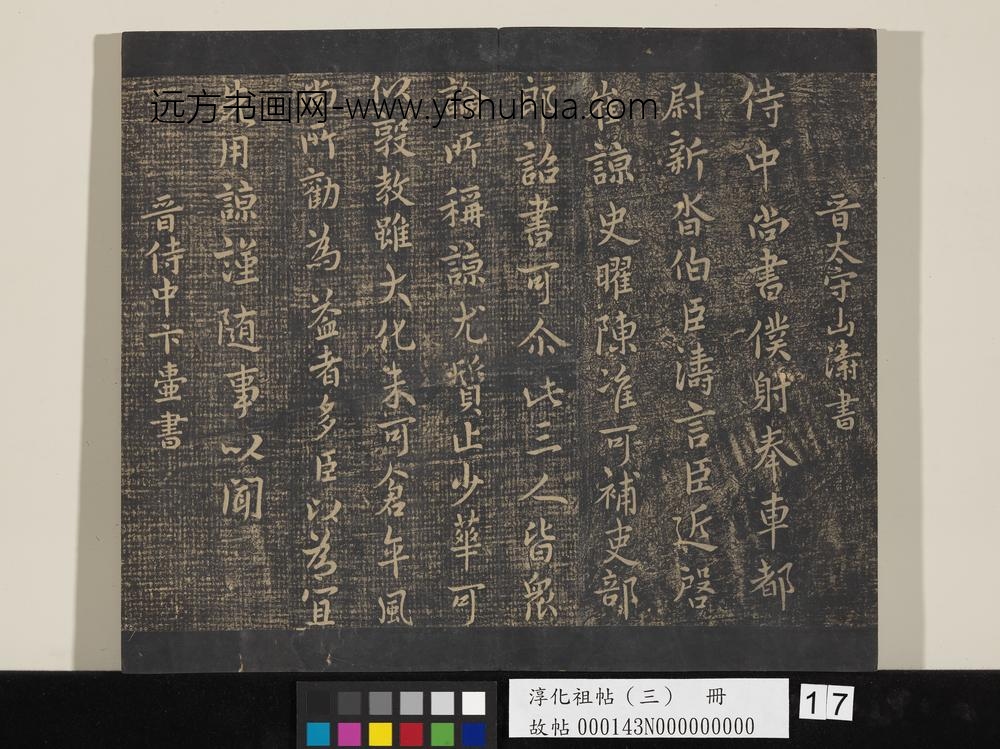 晉太守山濤書
侍中尚書僕射奉車都
尉新沓伯臣濤言臣近啓
崔諒史曜陳准可補吏部
郎詔書可尒此三人皆衆
論所稱諒尤質止少華可
以敦教雖大化未可倉卒風
尚所勸為益者多臣以為宜
先用諒謹隨事以聞
晉侍中卞壼書
远方书画网-www.yfshuhua.com
淳化祖帖（三） 冊
故帖 000143N000000000
17